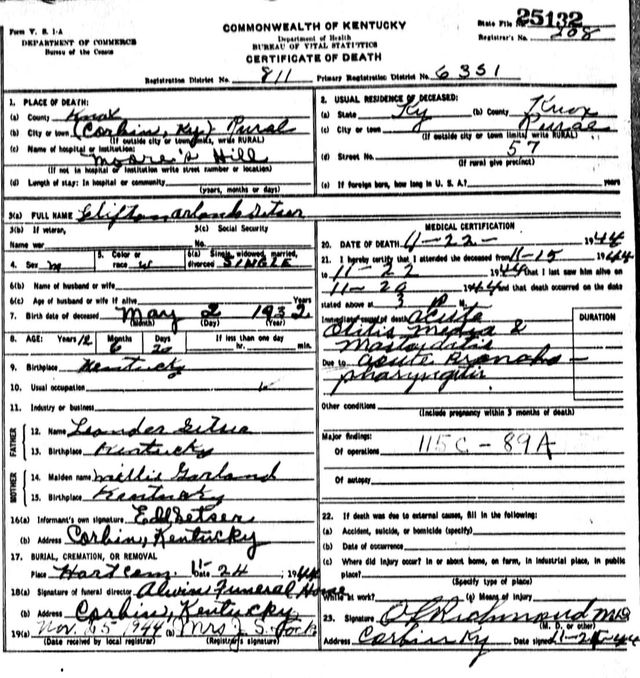 Form V. S. 1-A
DEPARTMENT OF COMMERCE
Bureau of the Census
COMMONWEALTH OF KENTUCKY
Department of Health
BUREAU OF VITAL STATISTICS
CERTIFICATE OF DEATH
State File No. 25132
Registrar's No. 208
Registration District No. 811 Primary Registration District No. 6351
1. PLACE OF DEATH:
(a) County Knox
(b) City or town (Corbin, Ky) Rural
(If outside city or town limits, write RURAL)
(c) Name of hospital or institution:
Moore's Hill
(If not in hospital or institution write street number or location)
(d) Length of stay: In hospital or community
(years, months or days)
2. USUAL RESIDENCE OF DECEASED:
(a) State Ky (b) County Knox
(c) City or town Rural
(If outside city or town limits, write RURAL)
(d) Street No. 57
(If rural give precinct)
(e) If foreign born, how long in U. S. A.? years
3(a) FULL NAME Setser
3(b) If veteran, 3(c) Social Security
Name war No.
4. Sex M 5. Color or race W 6(a) Single, widowed, married, divorced SINGLE
6(b) Name of husband or wife
6(c) Age of husband or wife if alive Years
7. Birth date of deceased May 2 1932
(Month) (Day) (Year)
8. AGE: Years 12 Months 6 Days 20 If less than one day
hr. min.
9. Birthplace Kentucky
10. Usual occupation
11. Industry or business
FATHER
12. Name Leander Setser
13. Birthplace Kentucky
MOTHER
14. Maiden name Millie Garland
15. Birthplace Kentucky
16(a) Informant's own signature Ed Setser
(b) Address Corbin, Kentucky
17. BURIAL, CREMATION, OR REMOVAL
Place Hart Cem. Date 11-24 1944
18(a) Signature of funeral director Funeral Home
(b) Address Corbin, Kentucky
19(a) Nov. 25 1944 (b) Mrs J. S.
(Date received by local registrar) (Registrar's signature)
MEDICAL CERTIFICATION
20. DATE OF DEATH 11-22- 1944
21. I hereby certify that I attended the deceased from 11-15 1944
to 11-22 1944 that I last saw him alive on
1944 and that death occurred on the date
stated above at 3 P. M.
Immediate cause of death acute
Otitis Media &
Mastoiditis
Due to acute Broncho-
pharyngitis
DURATION
Other conditions
(Include pregnancy within 3 months of death)
Major findings:
Of operations 115C - 89A
Of autopsy
22. If death was due to external causes, fill in the following:
(a) Accident, suicide, or homicide (specify)
(b) Date of occurrence
(c) Where did injury occur? In or about home, on farm, in industrial place, in public
place?
(Specify type of place)
While at work? (g) Means of injury
23. Signature O L Richmond M.D.
(M. D. or other)
Address Corbin Ky Date signed